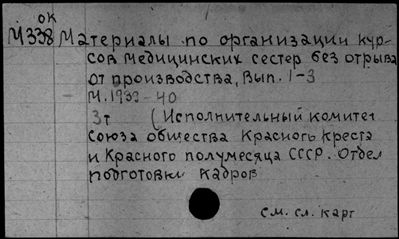 ок
М338 Материалы по организации кур-
сов медицинских сестер без отрыва
от производства, Вып. 1-3
М. 1939-40
3т (Исполнительный комитет
Союза общества Красного Креста
и Красного полумесяца СССР. Отдел
подготовки кадров
см. сл. карт